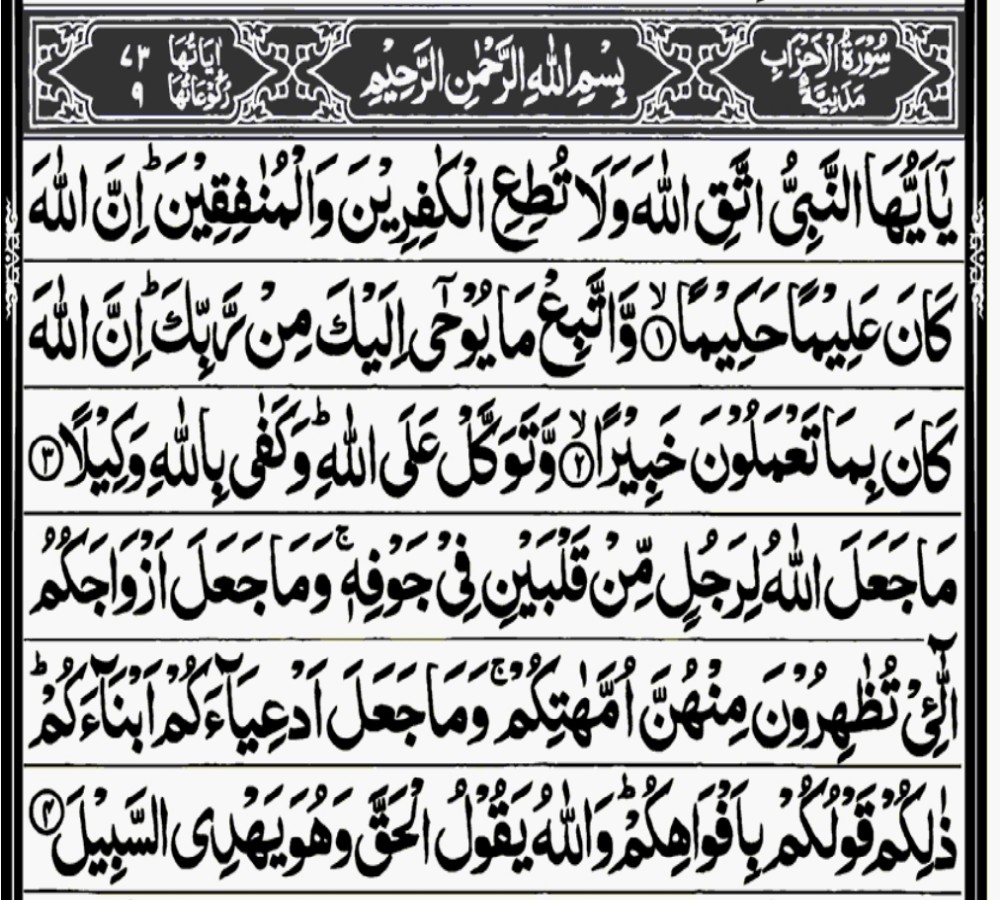 سُوْرَةُ الْاَحْزَابِ مَدَنِيَّةٌ
بِسْمِ اللّٰهِ الرَّحْمٰنِ الرَّحِيْمِ
اٰيَاتُهَا ٧٣
رُكُوْعَاتُهَا ٩
يٰۤاَيُّهَا النَّبِىُّ اتَّقِ اللّٰهَ وَلَا تُطِعِ الْكٰفِرِيْنَ وَالْمُنٰفِقِيْنَ ؕ اِنَّ اللّٰهَ
كَانَ عَلِيْمًا حَكِيْمًا ۙ‏﴿۱﴾ وَّاتَّبِعْ مَا يُوْحٰٓى اِلَيْكَ مِنْ رَّبِّكَ ؕ اِنَّ اللّٰهَ
كَانَ بِمَا تَعْمَلُوْنَ خَبِيْرًا ۙ‏﴿۲﴾ وَّتَوَكَّلْ عَلَى اللّٰهِ ؕ وَكَفٰى بِاللّٰهِ وَكِيْلًا ﴿۳﴾
مَا جَعَلَ اللّٰهُ لِرَجُلٍ مِّنْ قَلْبَيْنِ فِىْ جَوْفِهٖ ۚ وَمَا جَعَلَ اَزْوَاجَكُمُ
الّٰٓـئِْ تُظٰهِرُوْنَ مِنْهُنَّ اُمَّهٰتِكُمْ ۚ وَمَا جَعَلَ اَدْعِيَآءَكُمْ اَبْنَآءَكُمْ ؕ
ذٰلِكُمْ قَوْلُكُمْ بِاَفْوَاهِكُمْ ؕ وَاللّٰهُ يَقُوْلُ الْحَقَّ وَهُوَ يَهْدِى السَّبِيْلَ ﴿۴﴾